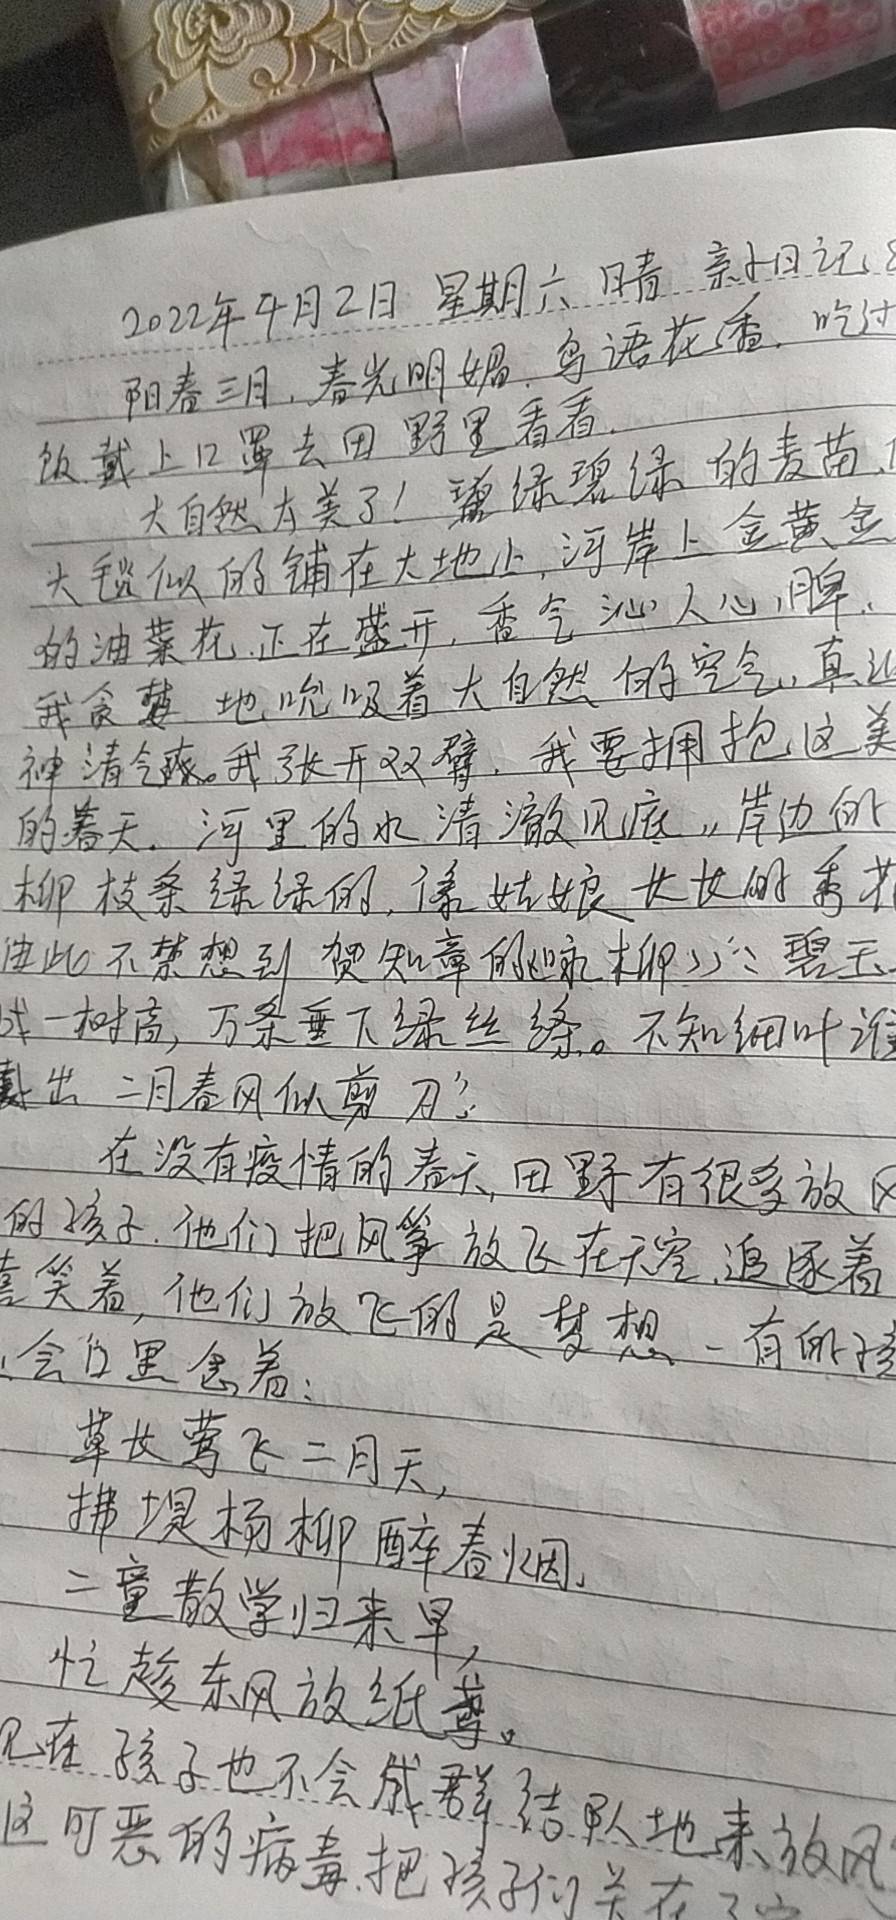 2022年4月2日 星期六 晴 亲子日记
阳春三月,春光明媚,鸟语花香,吃过
饭戴上口罩去田野里看看.
大自然太美了!碧绿碧绿的麦苗,
大毯似的铺在大地上,河岸上金黄金
的油菜花正在盛开,香气沁人心脾,
我贪婪地吮吸着大自然的空气,真让
神清气爽。我张开双臂,我要拥抱这美
的春天.河里的水清澈见底,岸边的
柳枝条绿绿的,像姑娘长长的秀
使此不禁想到贺知章的咏柳:碧玉
成一树高,万条垂下绿丝绦。不知细叶谁
裁出 二月春风似剪刀".
在没有疫情的春天,田野有很多放风
的孩子.他们把风筝放飞在天空,追逐着
嘻笑着,他们放飞的是梦想-有的孩
会口里念着:
草长莺飞二月天,
拂堤杨柳醉春烟,
二童散学归来早,
忙趁东风放纸尊。
现在孩子也不会成群结队地来放风
这可恶的病毒.把孩子们关在了